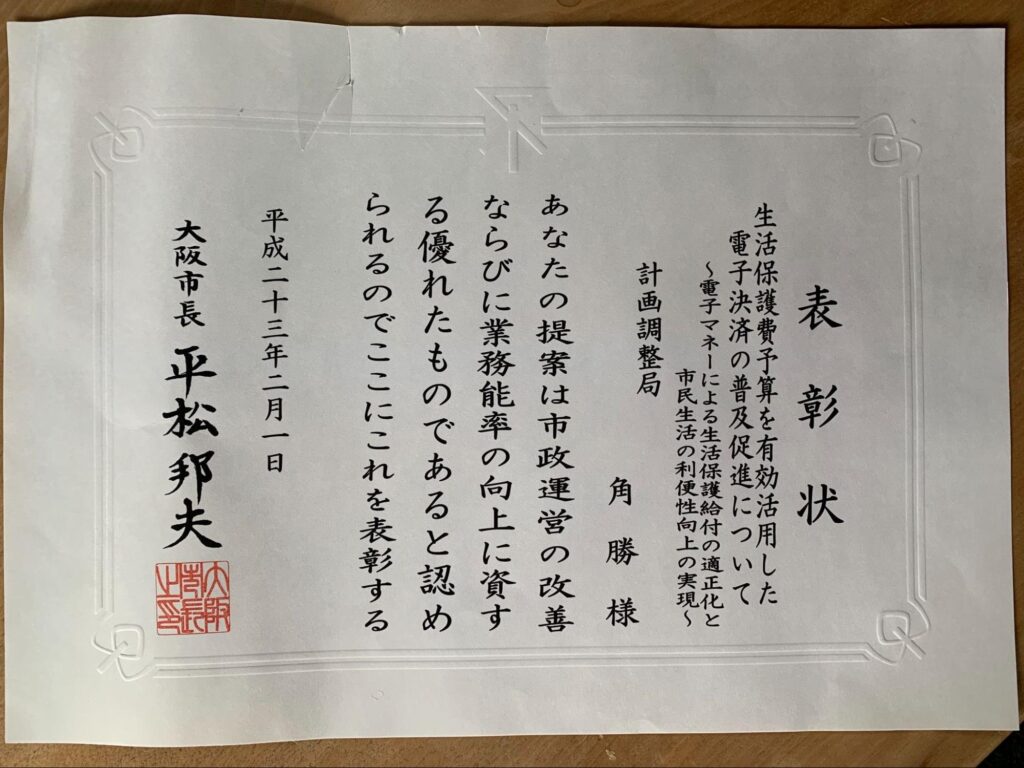 表彰状
生活保護費予算を有効活用した
電子決済の普及促進について
～電子マネーによる生活保護給付の適正化と
市民生活の利便性向上の実現～
計画調整局
角勝様
あなたの提案は市政運営の改善
ならびに業務能率の向上に資す
る優れたものであると認め
られるのでここにこれを表彰する
平成二十三年二月一日
大阪市長 平松邦夫
大阪市長之印